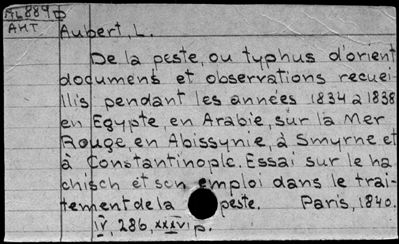 AL889φ
AHT
Aubert, L.
De la peste, ou typhus d'orient
documens et observations recuei-
llis pendant les années 1834 a 1838
en Egypte, en Arabie, sur la Mer
Rouge, en Abissynie, à Smyrne et
à Constantinople. Essai sur le ha
chisch et son emploi dans le trai-
tement de la peste. Paris, 1840.
IV, 286, xxxvi p.